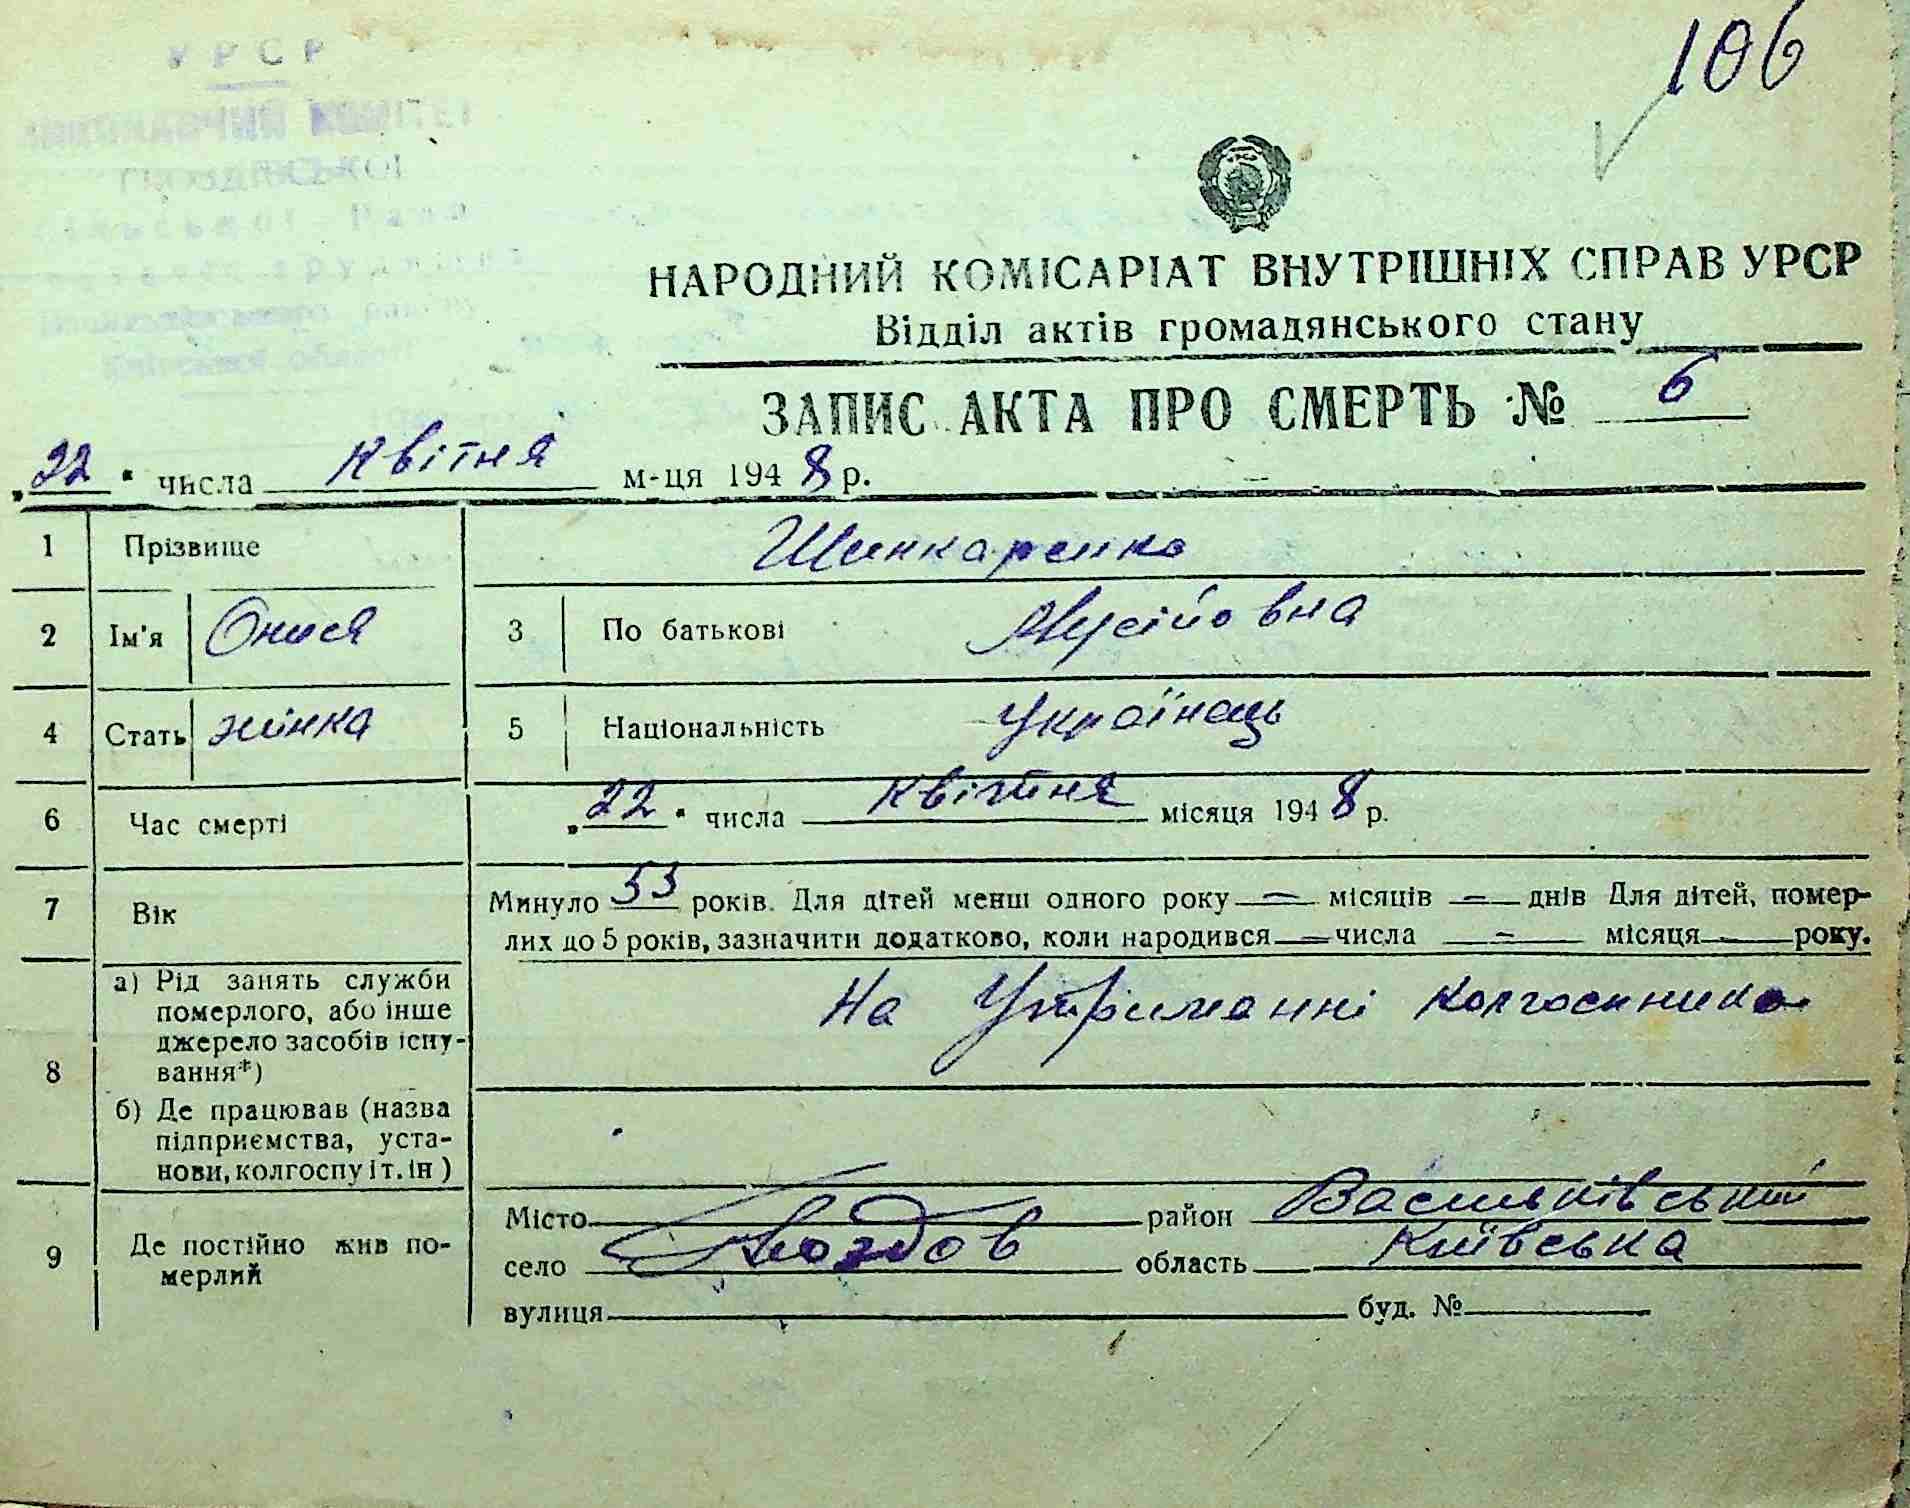 106
УРСР
ВИКОНАВЧИЙ КОМІТЕТ
ГВОЗДІВСЬКОЇ
НАРОДНИЙ КОМІСАРІАТ ВНУТРІШНІХ СПРАВ УРСР
Відділ актів громадянського стану
ЗАПИС АКТА ПРО СМЕРТЬ № 6
„22" числа Квітня м-ця 1948 р.
1 Прізвище Шинкаренко
2 Ім'я Онися 3 По батькові Мусійовна
4 Стать жінка 5 Національність Українець
6 Час смерті „22" числа Квітня місяця 1948 р.
7 Вік Минуло 53 років. Для дітей менш одного року — місяців — днів Для дітей, помер-
лих до 5 років, зазначити додатково, коли народився — числа — місяця — року.
8 а) Рід занять служби
померлого, або інше
джерело засобів існу-
вання*)
На Утриманні колгоспника
б) Де працював (назва
підприємства, уста-
нови, колгоспу і т. ін)
9 Де постійно жив по-
мерлий
Місто район Васильківський
село Гвоздов область Київська
вулиця буд. №